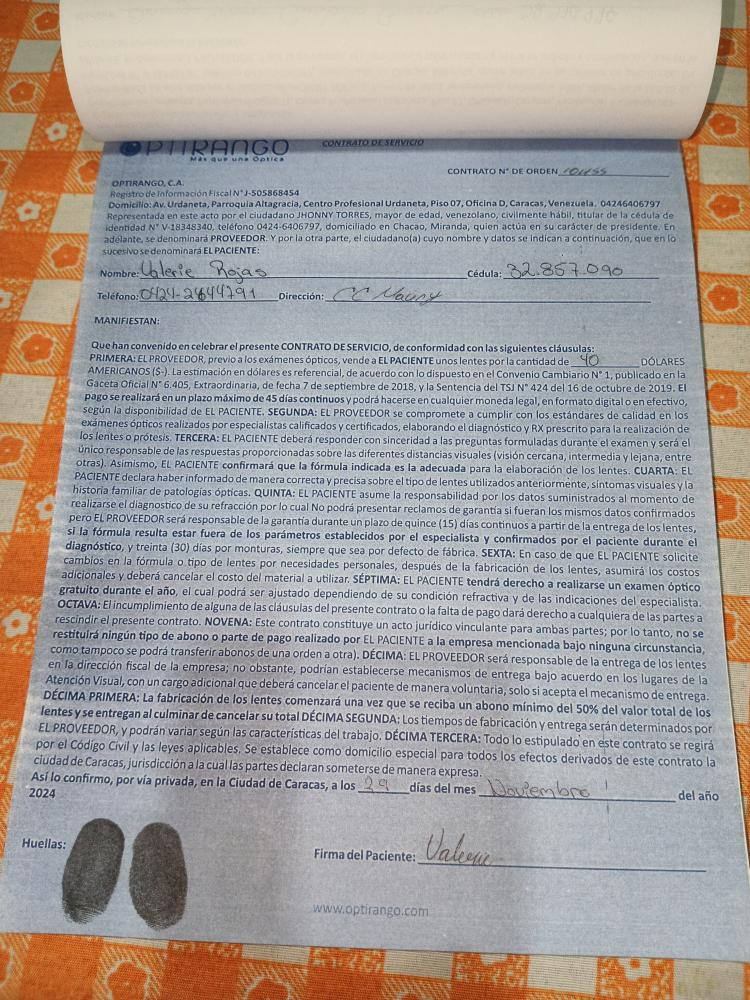 OPTIRANGO
Más que una Óptica
CONTRATO DE SERVICIO
CONTRATO N° DE ORDEN
OPTIRANGO, C.A.
Registro de Información Fiscal N°J-505868454
Domicilio: Av. Urdaneta, Parroquia Altagracia, Centro Profesional Urdaneta, Piso 07, Oficina D, Caracas, Venezuela. 04246406797
Representada en este acto por el ciudadano JHONNY TORRES, mayor de edad, venezolano, civilmente hábil, titular de la cédula de
identidad N° V-18348340, teléfono 0424-6406797, domiciliado en Chacao, Miranda, quien actúa en su carácter de presidente. En
adelante, se denominará PROVEEDOR. Y por la otra parte, el ciudadano(a) cuyo nombre y datos se indican a continuación, que en lo
sucesivo se denominará EL PACIENTE:
Nombre: Valerie Rojas Cédula: 32.857.090
Teléfono: 0424-2644791 Dirección: CC
MANIFIESTAN:
Que han convenido en celebrar el presente CONTRATO DE SERVICIO, de conformidad con las siguientes cláusulas:
PRIMERA: EL PROVEEDOR, previo a los exámenes ópticos, vende a EL PACIENTE unos lentes por la cantidad de 40 DÓLARES
AMERICANOS ($-). La estimación en dólares es referencial, de acuerdo con lo dispuesto en el Convenio Cambiario N° 1, publicado en la
Gaceta Oficial N° 6.405, Extraordinaria, de fecha 7 de septiembre de 2018, y la Sentencia del TSJ N° 424 del 16 de octubre de 2019. El
pago se realizará en un plazo máximo de 45 días continuos y podrá hacerse en cualquier moneda legal, en formato digital o en efectivo,
según la disponibilidad de EL PACIENTE. SEGUNDA: EL PROVEEDOR se compromete a cumplir con los estándares de calidad en los
exámenes ópticos realizados por especialistas calificados y certificados, elaborando el diagnóstico y RX prescrito para la realización de
los lentes o prótesis. TERCERA: EL PACIENTE deberá responder con sinceridad a las preguntas formuladas durante el examen y será el
único responsable de las respuestas proporcionadas sobre las diferentes distancias visuales (visión cercana, intermedia y lejana, entre
otras). Asimismo, EL PACIENTE confirmará que la fórmula indicada es la adecuada para la elaboración de los lentes. CUARTA: EL
PACIENTE declara haber informado de manera correcta y precisa sobre el tipo de lentes utilizados anteriormente, síntomas visuales y la
historia familiar de patologías ópticas. QUINTA: EL PACIENTE asume la responsabilidad por los datos suministrados al momento de
realizarse el diagnostico de su refracción por lo cual No podrá presentar reclamos de garantía si fueran los mismos datos confirmados
pero EL PROVEEDOR será responsable de la garantía durante un plazo de quince (15) días continuos a partir de la entrega de los lentes,
si la fórmula resulta estar fuera de los parámetros establecidos por el especialista y confirmados por el paciente durante el
diagnóstico, y treinta (30) días por monturas, siempre que sea por defecto de fábrica. SEXTA: En caso de que EL PACIENTE solicite
cambios en la fórmula o tipo de lentes por necesidades personales, después de la fabricación de los lentes, asumirá los costos
adicionales y deberá cancelar el costo del material a utilizar. SÉPTIMA: EL PACIENTE tendrá derecho a realizarse un examen óptico
gratuito durante el año, el cual podrá ser ajustado dependiendo de su condición refractiva y de las indicaciones del especialista.
OCTAVA: El incumplimiento de alguna de las cláusulas del presente contrato o la falta de pago dará derecho a cualquiera de las partes a
rescindir el presente contrato. NOVENA: Este contrato constituye un acto jurídico vinculante para ambas partes; por lo tanto, no se
restituirá ningún tipo de abono o parte de pago realizado por EL PACIENTE a la empresa mencionada bajo ninguna circunstancia,
como tampoco se podrá transferir abonos de una orden a otra). DÉCIMA: EL PROVEEDOR será responsable de la entrega de los lentes
en la dirección fiscal de la empresa; no obstante, podrían establecerse mecanismos de entrega bajo acuerdo en los lugares de la
Atención Visual, con un cargo adicional que deberá cancelar el paciente de manera voluntaria, solo si acepta el mecanismo de entrega.
DÉCIMA PRIMERA: La fabricación de los lentes comenzará una vez que se reciba un abono mínimo del 50% del valor total de los
lentes y se entregan al culminar de cancelar su total DÉCIMA SEGUNDA: Los tiempos de fabricación y entrega serán determinados por
EL PROVEEDOR, y podrán variar según las características del trabajo. DÉCIMA TERCERA: Todo lo estipulado en este contrato se regirá
por el Código Civil y las leyes aplicables. Se establece como domicilio especial para todos los efectos derivados de este contrato la
ciudad de Caracas, jurisdicción a la cual las partes declaran someterse de manera expresa.
Así lo confirmo, por vía privada, en la Ciudad de Caracas, a los 29 días del mes Noviembre del año
2024
Huellas:
Firma del Paciente: Valerie
www.optirango.com